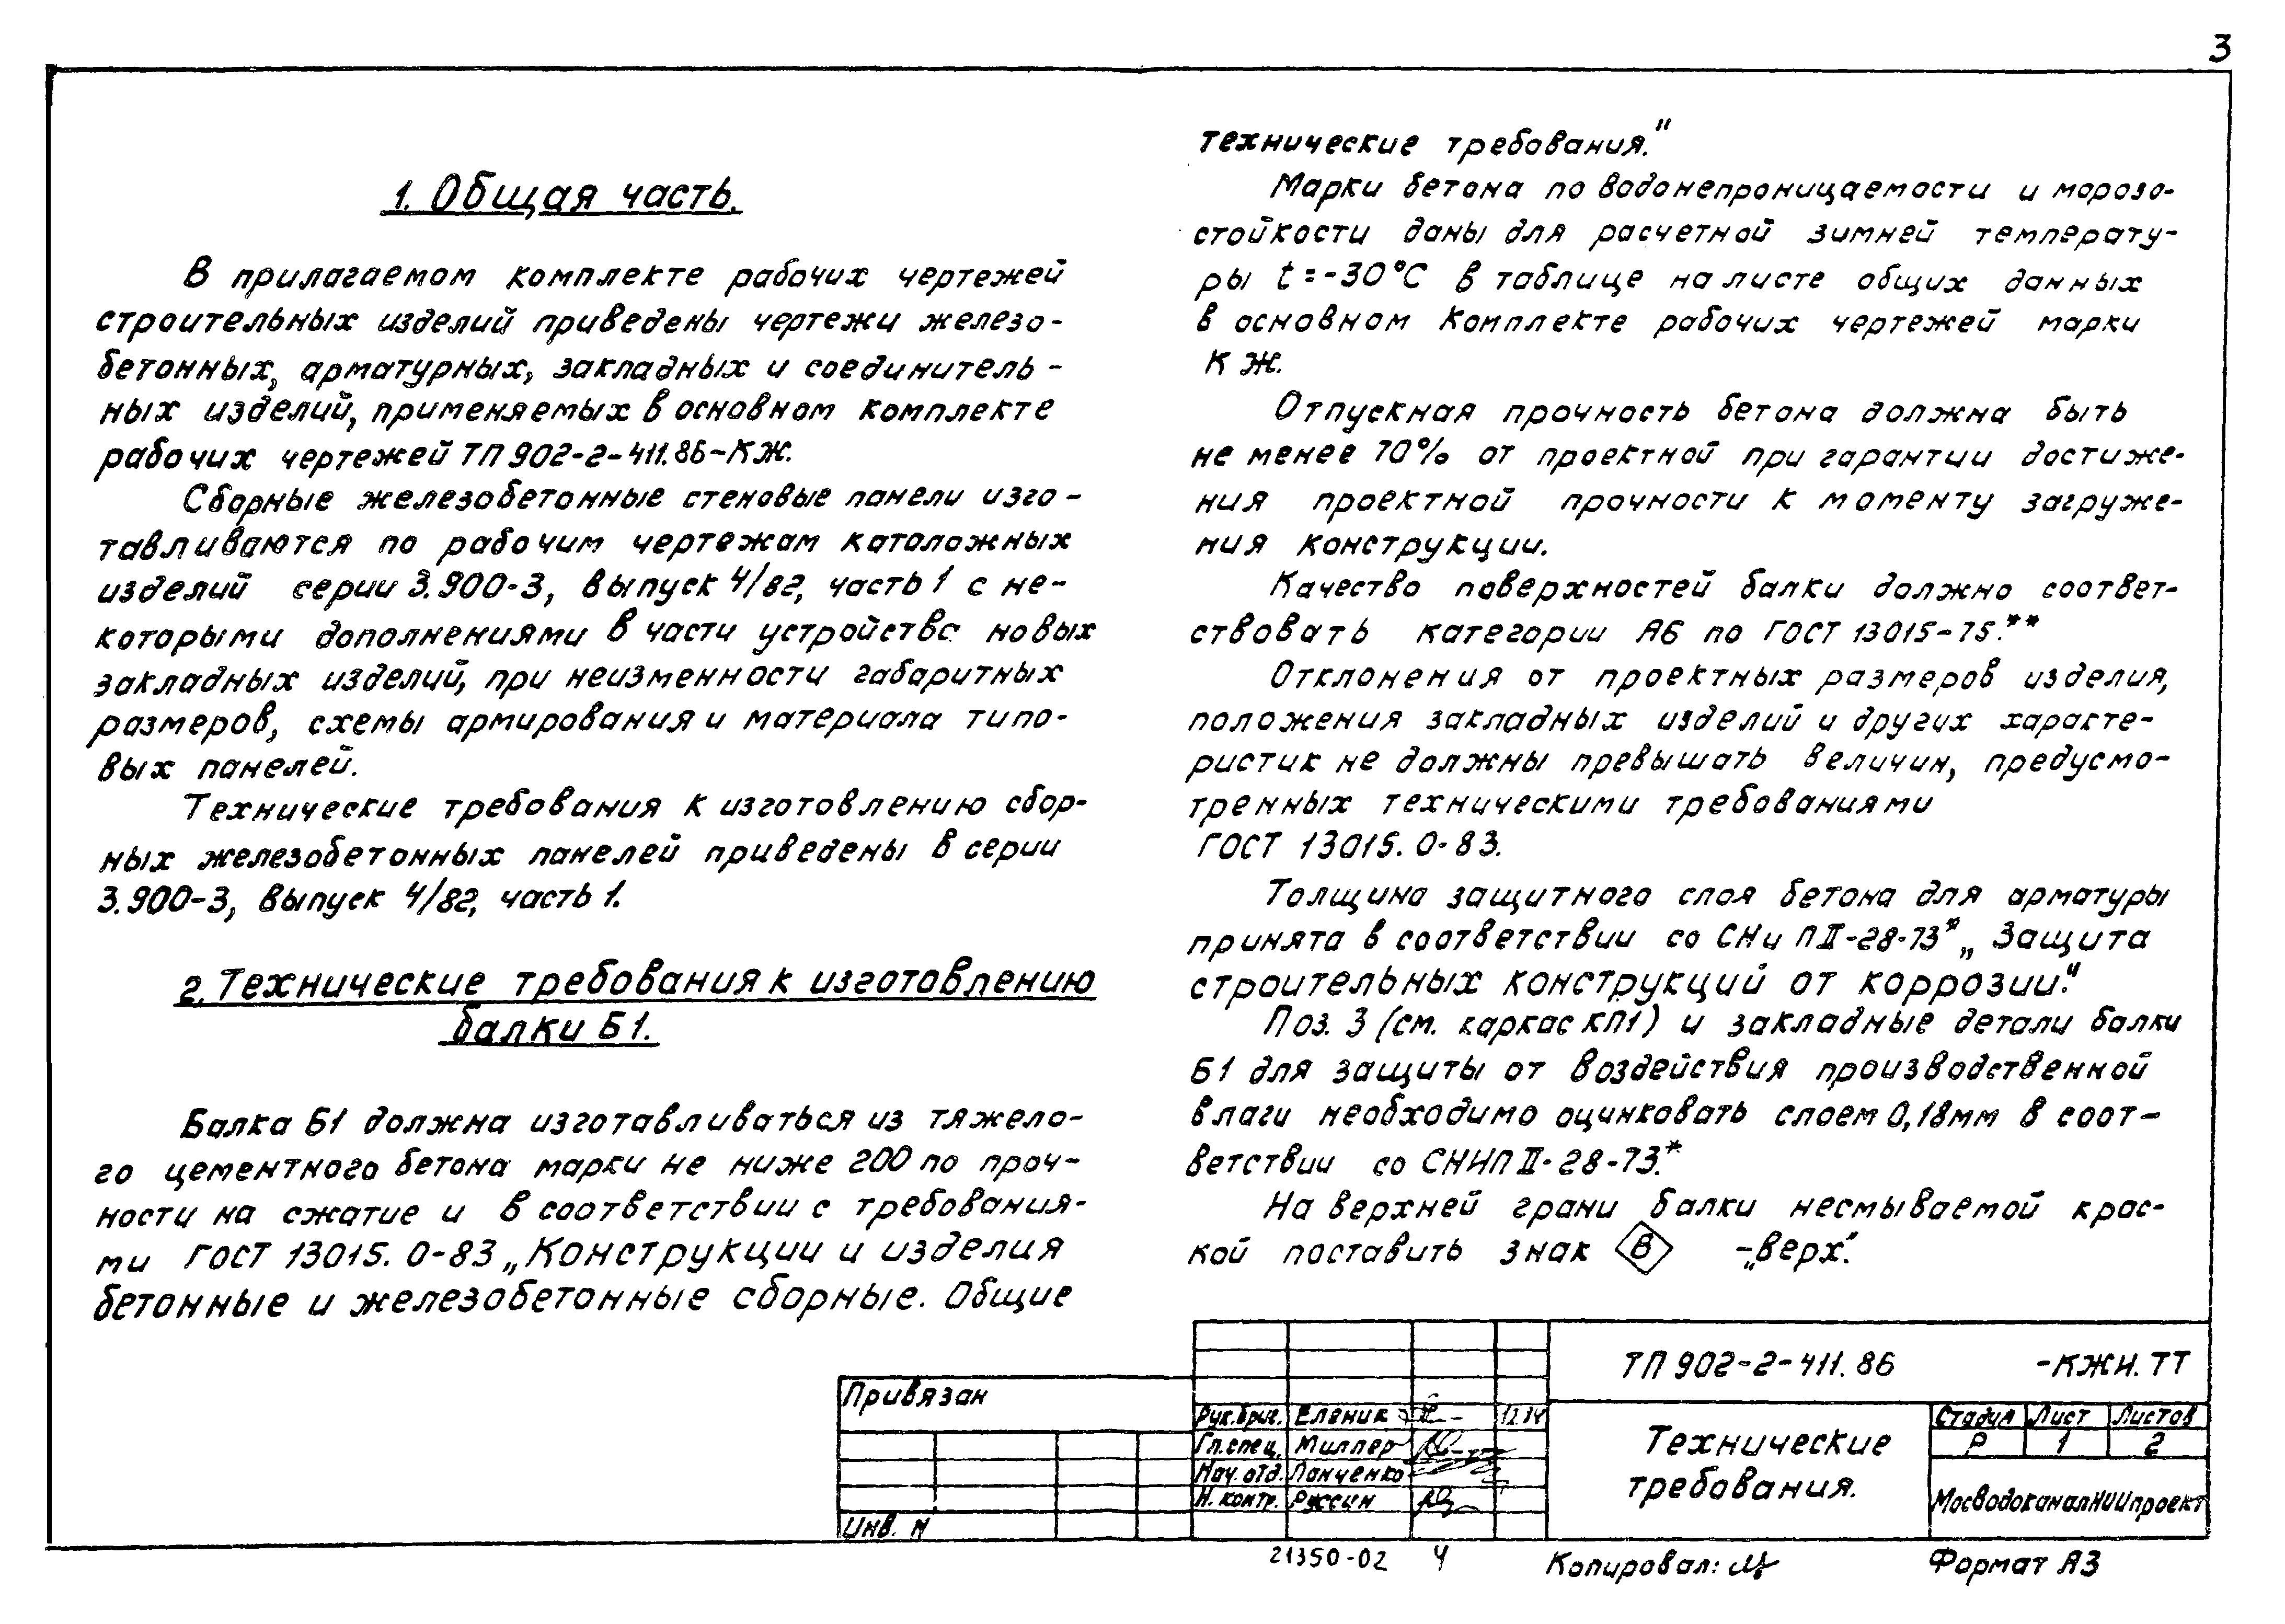 3
1. Общая часть.
В прилагаемом комплекте рабочих чертежей
строительных изделий приведены чертежи железо-
бетонных, арматурных, закладных и соединитель-
ных изделий, применяемых в основном комплекте
рабочих чертежей ТП 902-2-411.86-КЖ.
Сборные железобетонные стеновые панели изго-
тавливаются по рабочим чертежам каталожных
изделий серии 3.900-3, выпуск 4/82, часть 1 с не-
которыми дополнениями в части устройства новых
закладных изделий, при неизменности габаритных
размеров, схемы армирования и материала типо-
вых панелей.
Технические требования к изготовлению сбор-
ных железобетонных панелей приведены в серии
3.900-3, выпуск 4/82, часть 1.
2. Технические требования к изготовлению
балки Б1.
Балка Б1 должна изготавливаться из тяжело-
го цементного бетона марки не ниже 200 по проч-
ности на сжатие и в соответствии с требования-
ми ГОСТ 13015.0-83 „Конструкции и изделия
бетонные и железобетонные сборные. Общие
технические требования."
Марки бетона по водонепроницаемости и морозо-
стойкости даны для расчетной зимней температу-
ры t=-30°С в таблице на листе общих данных
в основном комплекте рабочих чертежей марки
КЖ.
Отпускная прочность бетона должна быть
не менее 70% от проектной при гарантии достиже-
ния проектной прочности к моменту загруже-
ния конструкции.
Качество поверхностей балки должно соответ-
ствовать категории А6 по ГОСТ 13015-75.**
Отклонения от проектных размеров изделия,
положения закладных изделий и других характе-
ристик не должны превышать величин, предусмо-
тренных техническими требованиями
ГОСТ 13015.0-83.
Толщина защитного слоя бетона для арматуры
принята в соответствии со СНиП II-28-73* „Защита
строительных конструкций от коррозии."
Поз. 3 (см. каркас КП1) и закладные детали балки
Б1 для защиты от воздействия производственной
влаги необходимо оцинковать слоем 0,18мм в соот-
ветствии со СНИП II-28-73.*
На верхней грани балки несмываемой крас-
кой поставить знак В -„верх".
ТП 902-2-411.86 -КЖИ.ТТ
Привязан
Рук.бриг. Еленик 12.84
Гл.спец. Миллер
Нач. отд. Панченко
Н. контр. Руссин
Инв. N
Технические
требования.
Стадия Лист Листов
Р 1 2
МосводоканалНИИпроект
21350-02 4
Копировал:
Формат А3